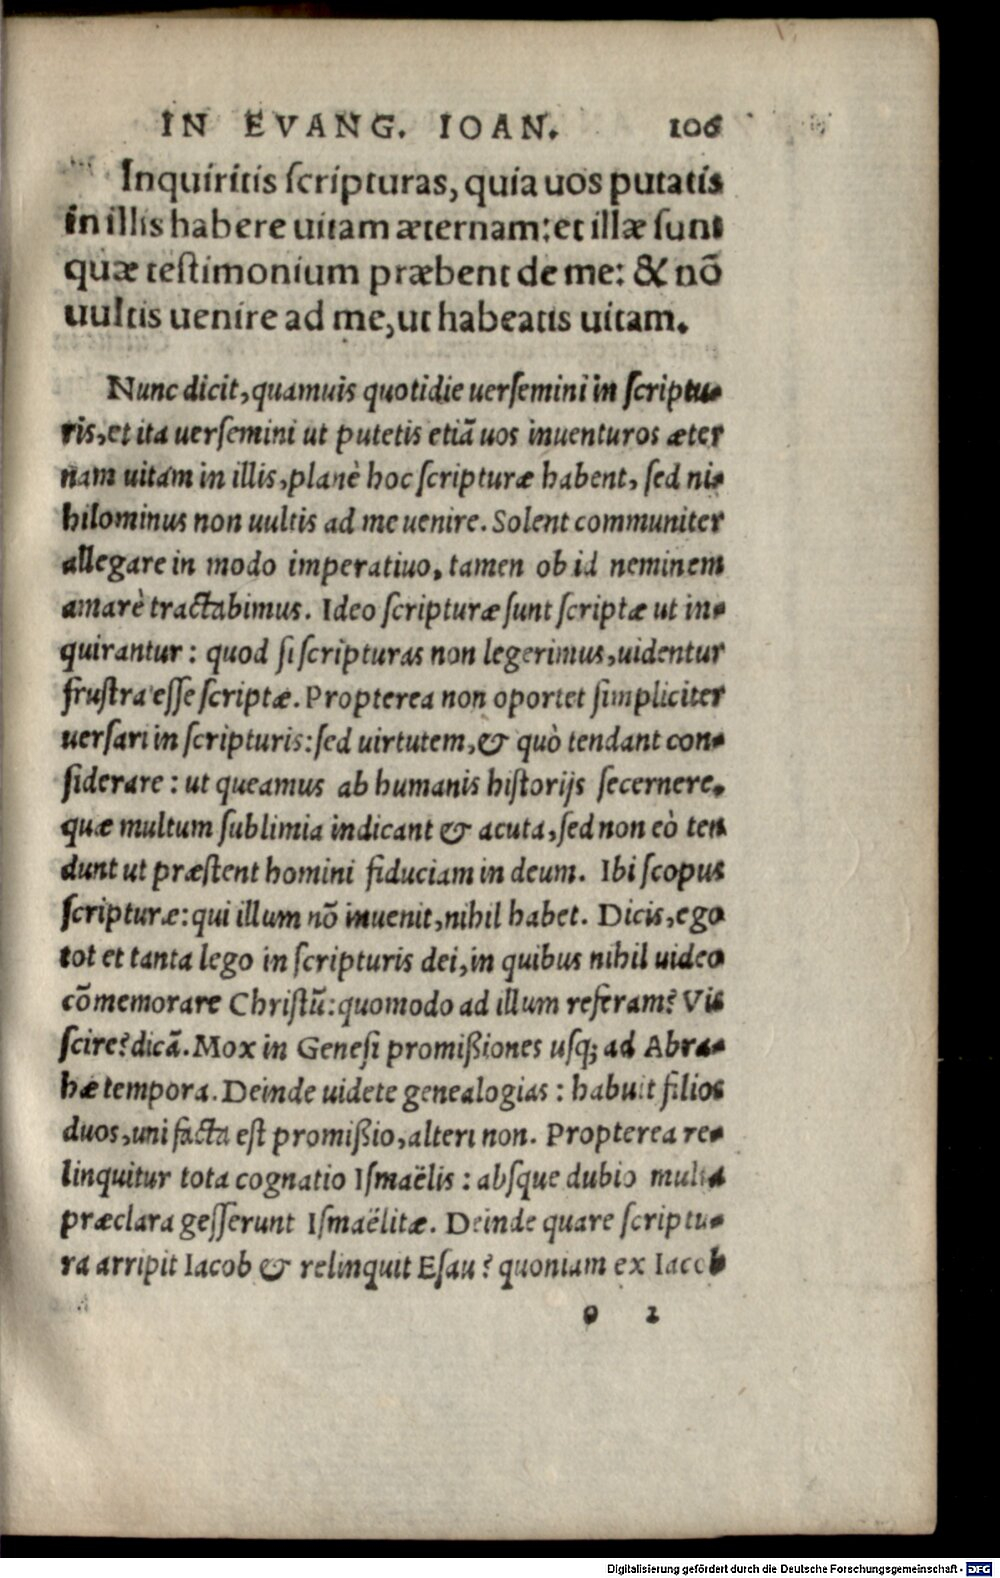 IN EVANG. IOAN. 106
Inquiritis ſcripturas, quia uos putatis
in illis habere uitam æternam: et illæ ſunt
quæ teſtimonium præbent de me: & nõ
uultis uenire ad me, ut habeatis uitam.
Nunc dicit, quamuis quotidie uerſemini in ſcriptu-
ris, et ita uerſemini ut putetis etiã uos inuenturos æter
nam uitam in illis, planè hoc ſcripturæ habent, ſed ni-
hilominus non uultis ad me uenire. Solent communiter
allegare in modo imperatiuo, tamen ob id neminem
amarè tractabimus. Ideo ſcripturæ ſunt ſcriptæ ut in-
quirantur: quod ſi ſcripturas non legerimus, uidentur
fruſtra eſſe ſcriptæ. Propterea non oportet ſimpliciter
uerſari in ſcripturis: ſed uirtutem, & quò tendant con-
ſiderare: ut queamus ab humanis hiſtorijs ſecernere.
quæ multum ſublimia indicant & acuta, ſed non eò ten
dunt ut præſtent homini fiduciam in deum. Ibi ſcopus
ſcripturæ: qui illum nõ inuenit, nihil habet. Dicis, ego
tot et tanta lego in ſcripturis dei, in quibus nihil uideo
cõmemorare Chriſtũ: quomodo ad illum referam? Vis
ſcire? dicã. Mox in Geneſi promißiones uſq; ad Abra-
hæ tempora. Deinde uidete genealogias: habuit filios
duos, uni facta eſt promißio, alteri non. Propterea re-
linquitur tota cognatio Iſmaëlis: abſque dubio multa
præclara geſſerunt Iſmaëlitæ. Deinde quare ſcriptu-
ra arripit Iacob & relinquit Eſau? quoniam ex Iacob
o 2
Digitalisierung gefördert durch die Deutsche Forschungsgemeinschaft - DFG